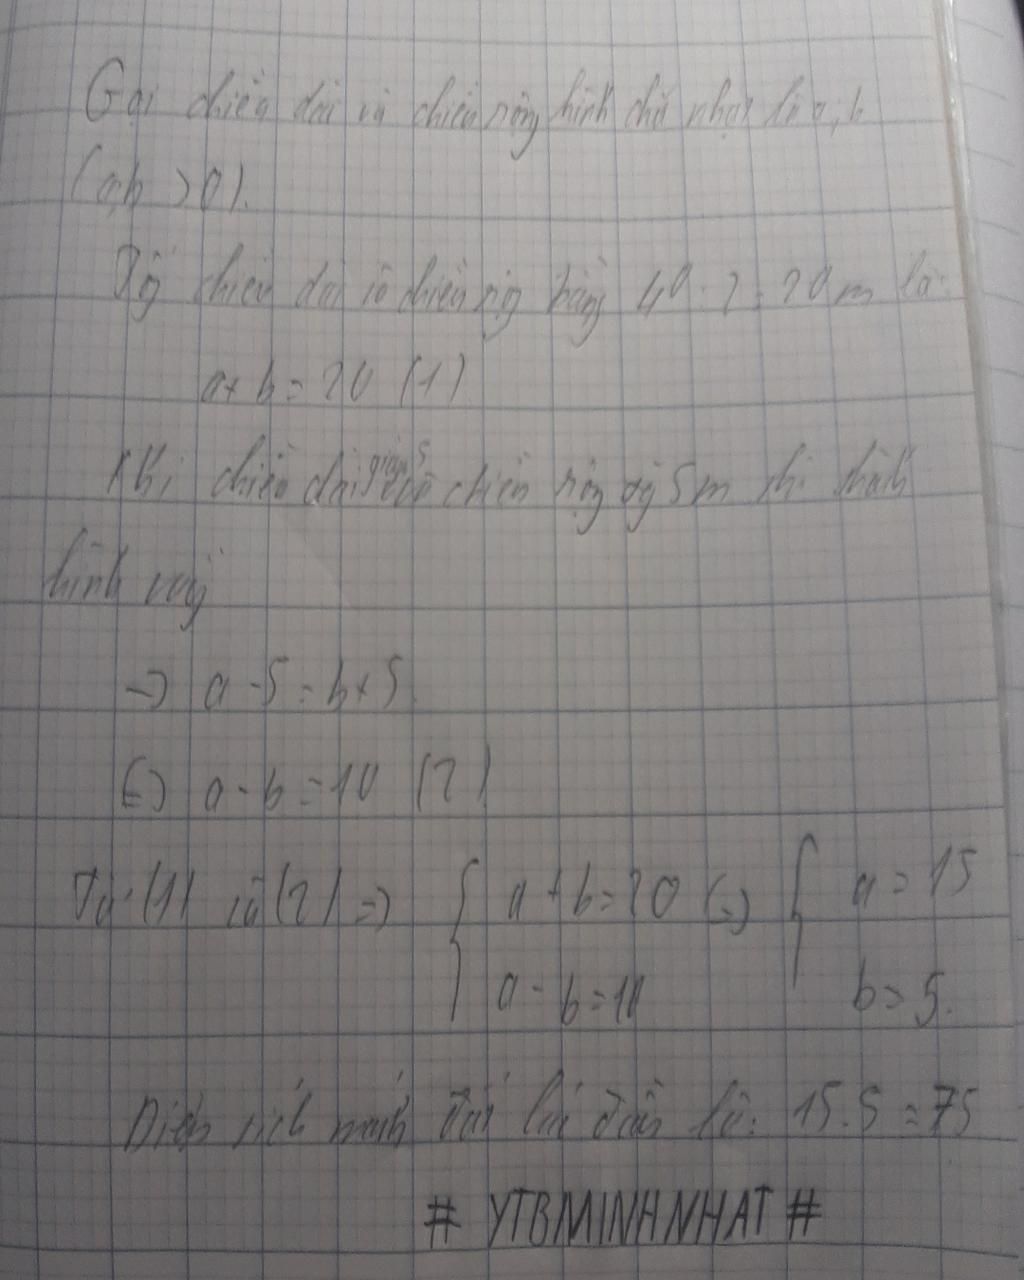 Gọi chiều dài và chiều rộng hình chữ nhật là a, b
(a,b > 0).
Tổng chiều dài và chiều rộng bằng 40 : 2 = 20 m là:
a + b = 20 (1)
Khi chiều dài giảm 5 và chiều rộng tăng 5m thì thành
hình vuông
=> a - 5 = b + 5
<=> a - b = 10 (2)
Từ (1) và (2) => { a + b = 20 <=> { a = 15
a - b = 10 b = 5.
Diện tích mảnh đất lúc đầu là: 15.5 = 75
# YTBMINHNHAT #